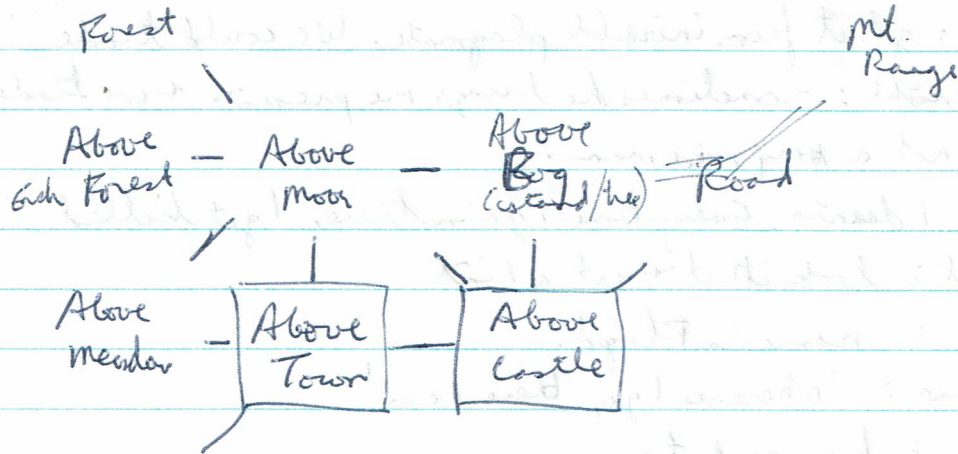 Forest
Mt.
Range
Above
Ench Forest
Above
Moor
Above
Bog
(isktand/hex)
Road
Above
Meadow
Above
Town
Above
Castle